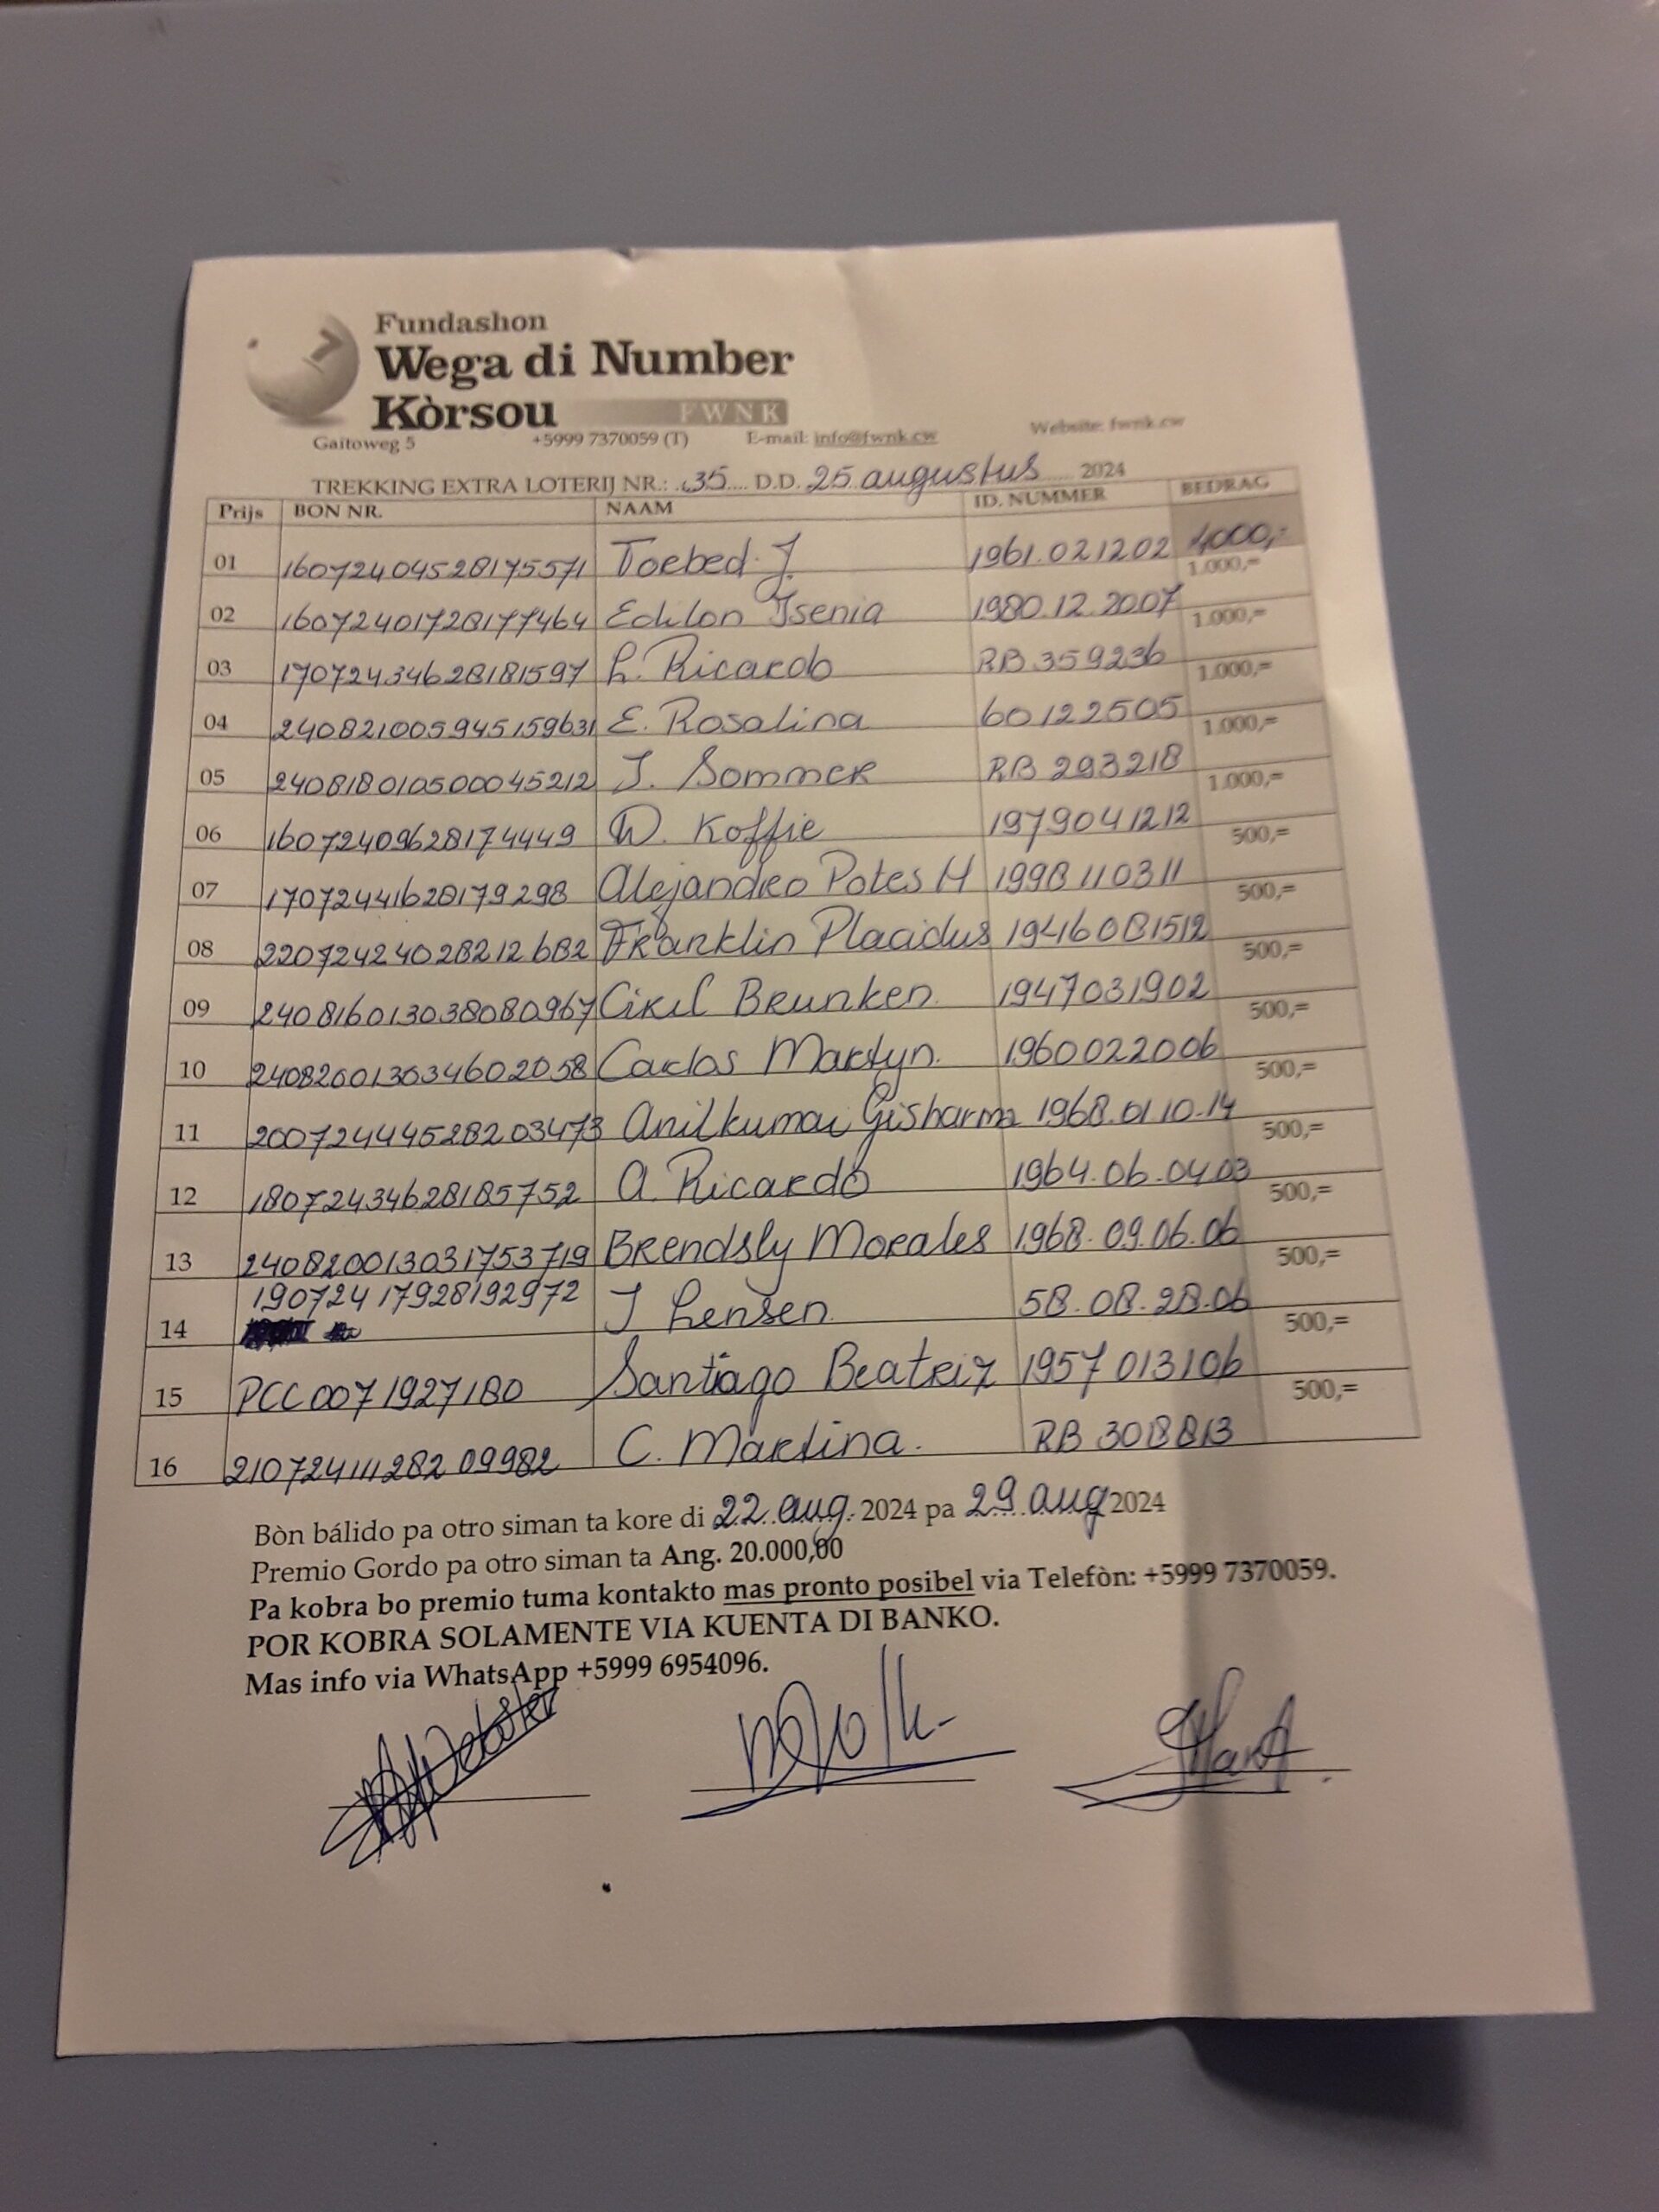 Fundashon
Wega di Number
Kòrsou FWNK
Gaitoweg 5 +5999 7370059 (T) E-mail: info@fwnk.cw Website: fwnk.cw
TREKKING EXTRA LOTERIJ NR.: 35 D.D. 25 augustus 2024
Prijs BON NR. NAAM ID. NUMMER BEDRAG
01 16072404528175571 Toebed J. 1961.021202 4000,-
1.000,=
02 16072401728177464 Edilon Isenia 1980.12.2007 1.000,=
03 17072434628181597 L. Ricardo RB 359236 1.000,=
04 240821005945159631 E. Rosalina 60122505 1.000,=
05 240818010500045212 J. Sommer RB 293218 1.000,=
06 16072409628174449 W. Koffie 1979041212 500,=
07 17072441628179298 Alejandro Potes H 1998110311 500,=
08 22072424028212682 Franklin Placidus 1946081512 500,=
09 240816013038080967 Ciril Brunken 1947031902 500,=
10 240820013034602058 Carlos Martyn. 1960022006 500,=
11 20072444528203473 Anilkumar Gisharma 1968.0110.14 500,=
12 18072434628185752 A. Ricardo 1964.06.04.03 500,=
13 240820013031753719 Brendsly Morales 1968.09.06.06 500,=
14 19072417928192972 J Lensen 58.08.28.06 500,=
15 PCC0071927180 Santiago Beatriz 1957013106 500,=
16 21072411128209982 C. Martina. RB 3018813
Bòn bálido pa otro siman ta kore di 22 aug. 2024 pa 29 aug 2024
Premio Gordo pa otro siman ta Ang. 20.000,00
Pa kobra bo premio tuma kontakto mas pronto posibel via Telefòn: +5999 7370059.
POR KOBRA SOLAMENTE VIA KUENTA DI BANKO.
Mas info via WhatsApp +5999 6954096.